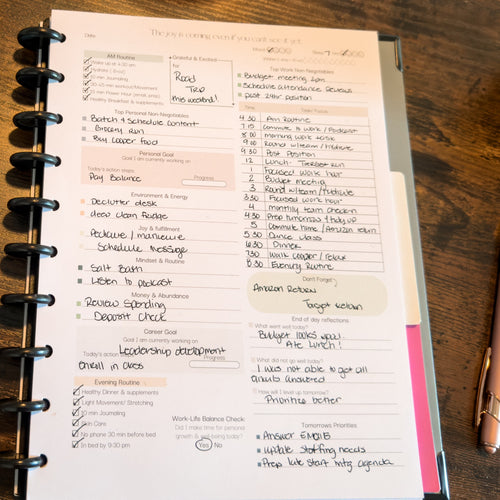 The joy is coming even if you can't see it yet.
Date:
AM Routine
Wake up at 4:30 am
Hydrate
10 min Journaling
30-45 min workout/Movement
Healthy Breakfast & supplements
Grateful & Excited
for
Road
Trip
this weekend!
Mood
Sleep 7
Top Work Non Negotiables
Budget meeting 2pm
Schedule Attendance Reviews
post 24hr position
Top Personal Non-Negotiables
Batch + Schedule content
Grocery Run
Buy Cooper food
Personal Goal
Goal I am currently working on
Today's action steps
Pay Balance
Progress
Environment & Energy
Declutter desk
deep clean fridge
Joy & fulfillment
Pedicure / manicure
Schedule massage
Mindset & Routine
Salt Bath
Listen to podcast
Money & Abundance
Review Spending
Deposit Check
Career Goal
Goal I am currently working on
Leadership development
Today's action
Enroll in
Progress
Evening Routine
Healthy Dinner & supplements
Light Movement/ Stretching
10 min Journaling
Skin Care
No phone 30 min before bed
In bed by 9:30 pm
Work-Life Balance Check:
Did I make time for personal
growth & well-being today?
Yes No
Time
Task/ Focus
4 30 Am Routine
7 15 Commute to work / Podcast
8 morning work block
9 00 Round w/team / midicare
9 30 Post Position
12 Lunch- Tanger run
1 Focused work hour
2 Budget meeting
3 Round w/team/
3:30 Focused work hour
4 monthly team check-in
4:30 Prep tomorrow / tidy up
5 Commute home / Amazon return
5:30 Dance class
6:30 Dinner
7:30 Walk cooper / relax
8:30 Evening Routine
Don't Forget
Amazon Return
Target Return
End of day reflections
What went well today?
Budget looks good
Ate Lunch!
What did not go well today?
I was not able to get all
emails answered
How will I level up tomorrow?
Prioritize better
Tomorrows Priorities
Answer EMAILS
Update staffing needs
Prep late start mtg agenda